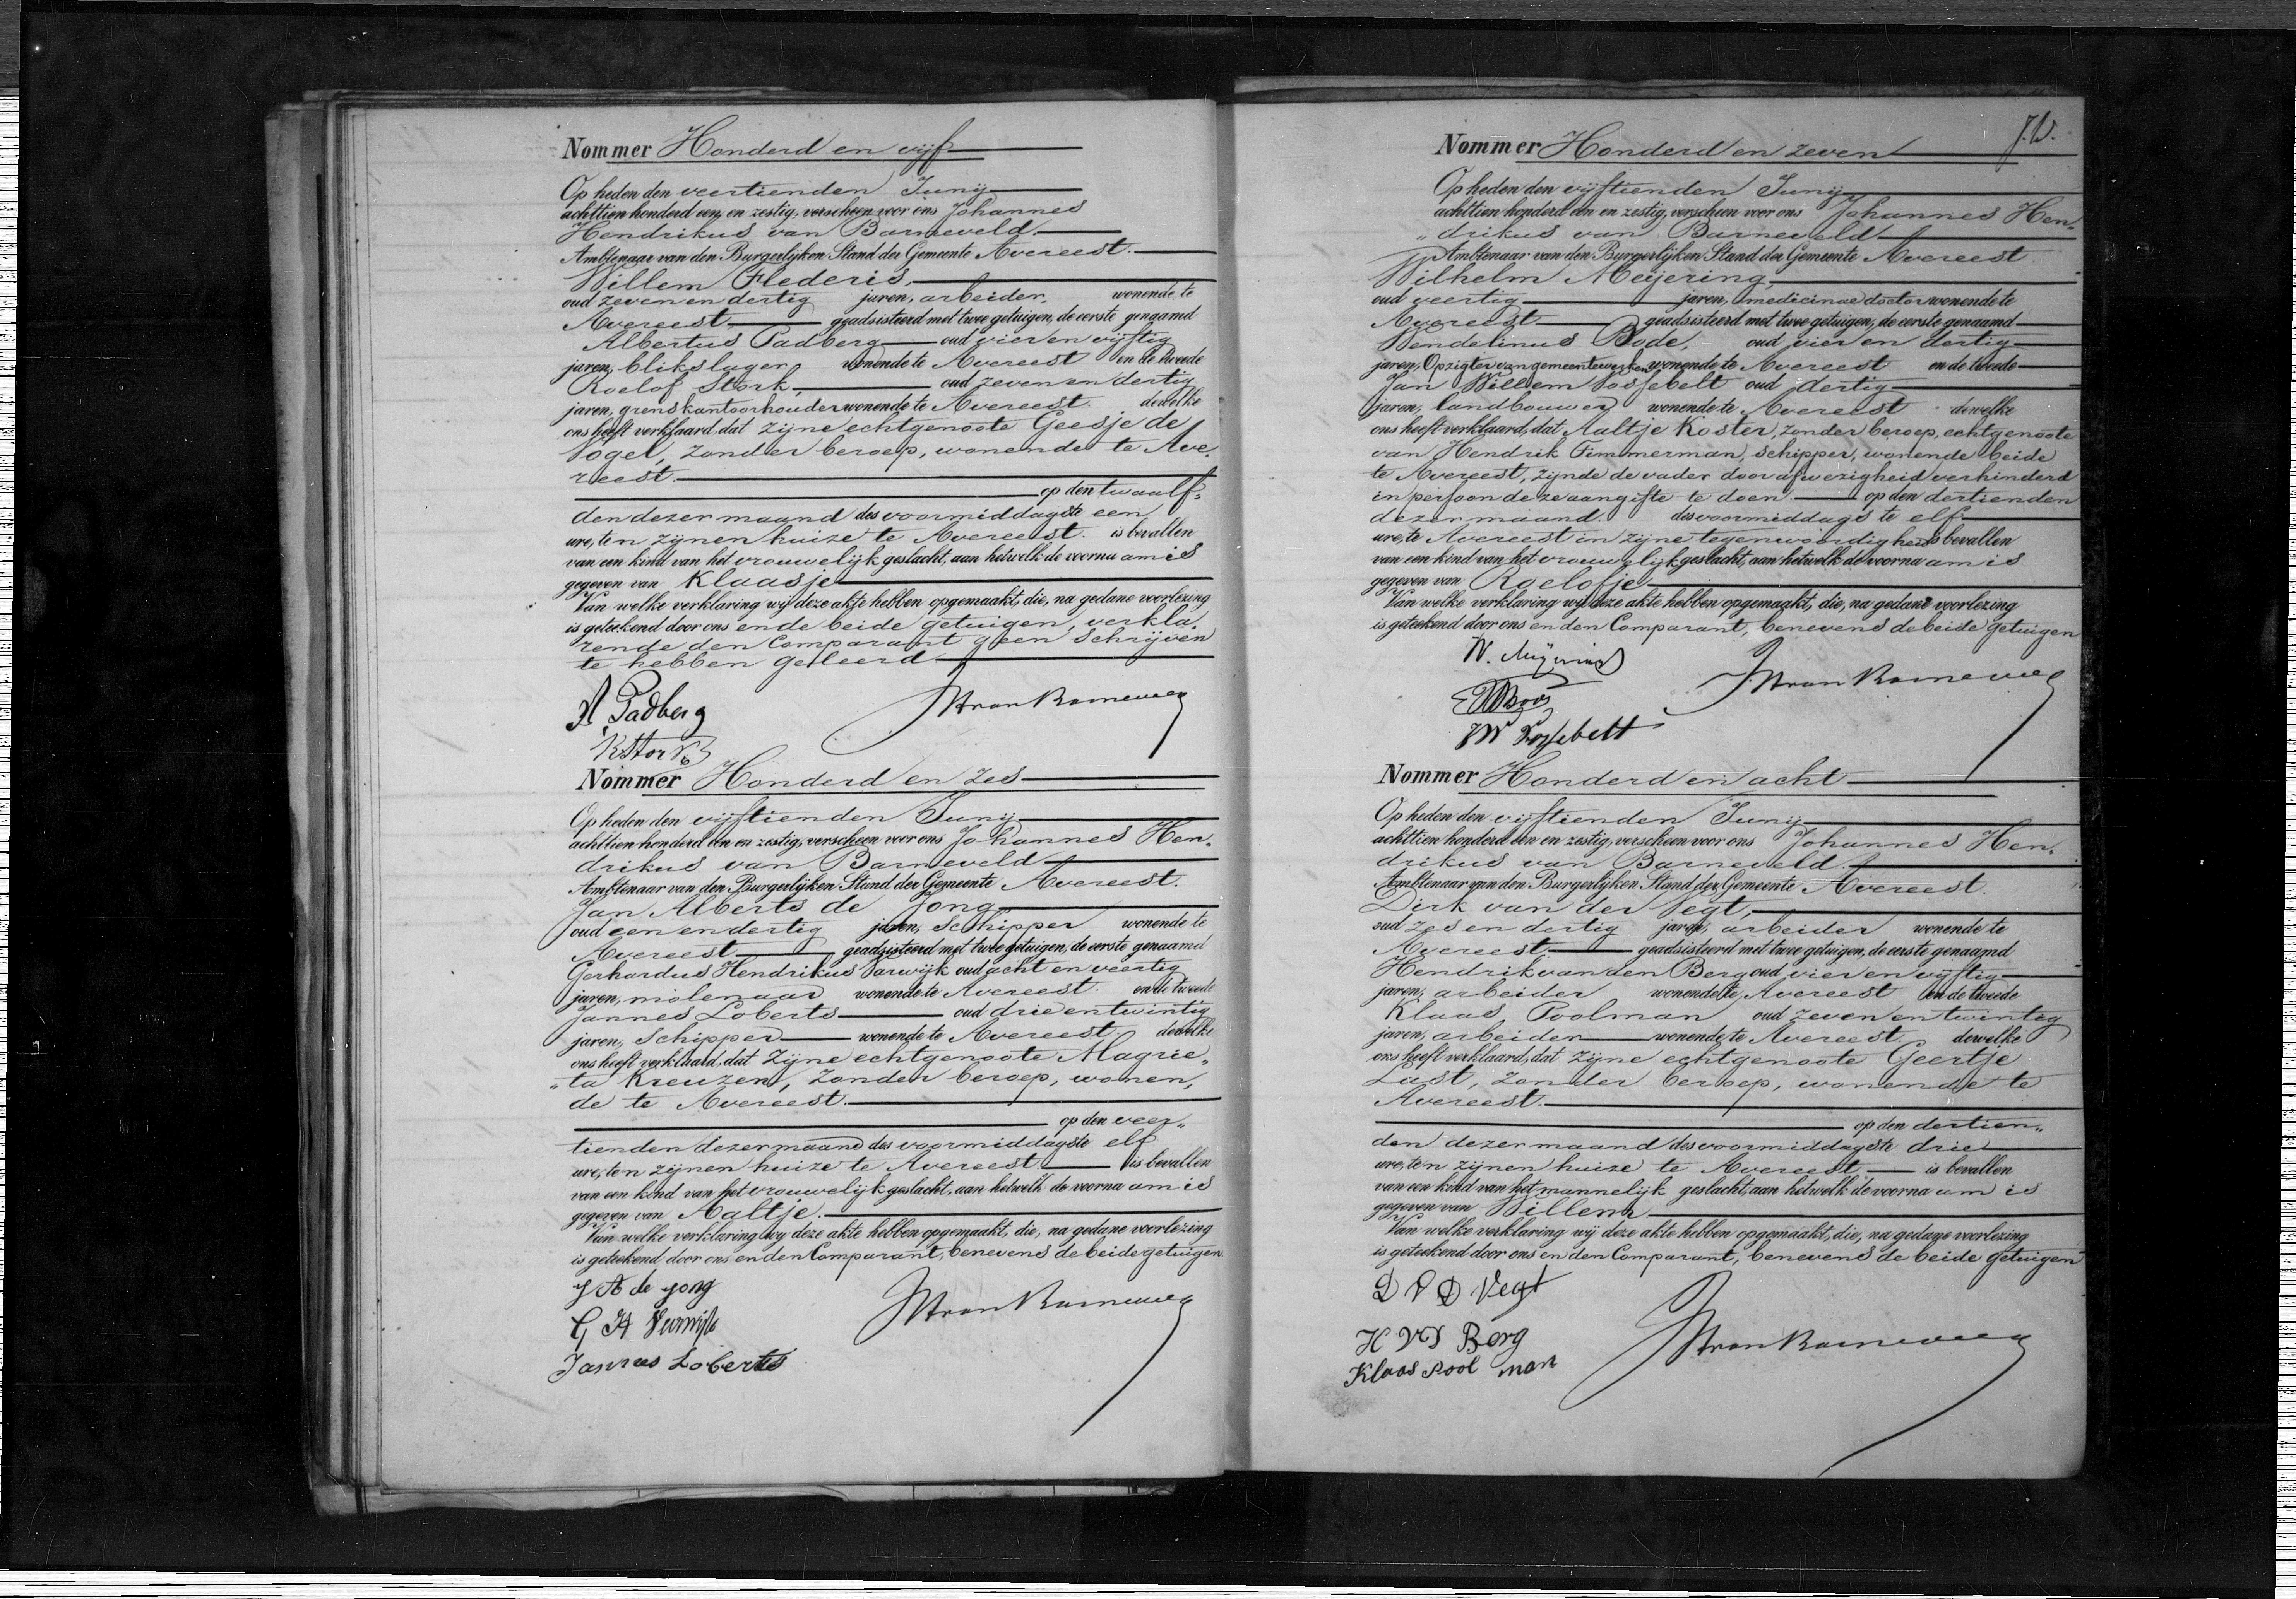 Nommer Honderd en vijf
Op heden den veertienden Junij
achttien honderd een en zestig, verscheen voor ons Johannes
Hendrikus van Barneveld
Ambtenaar van den Burgerlijken Stand der Gemeente Avereest.
Willem Flederis,
oud zeven en dertig jaren, arbeider, wonende te
Avereest geadsisteerd met twee getuigen, de eerste genaamd
Albertus Padberg oud vier en vijftig
jaren, blikslager wonende te Avereest en de tweede
Roelof Stork, oud zeven en dertig
jaren, grenskantoorhouder wonende te Avereest. dewelke
ons heeft verklaard, dat zijne echtgenoote Geesje de
Vogel, zonder beroep, wonende te Ave-
reest.
op den twaalf-
den dezer maand des voormiddags te een
ure, ten zijnen huize te Avereest. is bevallen
van een kind van het vrouwelijk geslacht, aan hetwelk de voorna am is
gegeven van Klaasje
Van welke verklaring wij deze akte hebben opgemaakt, die, na gedane voorlezing
is geteekend door ons en de beide getuigen, verkla-
rende den Comparant geen schrijven
te hebben geleerd
A Padberg
R Stork
JHvanBarneveld
Nommer Honderd en zes
Op heden den vijftienden Junij
achttien honderd een en zestig, verscheen voor ons Johannes Hen-
drikus van Barneveld
Ambtenaar van den Burgerlijken Stand der Gemeente Avereest.
Jan Alberts de Jong
oud een en dertig jaren, Schipper wonende te
Avereest geadsisteerd met twee getuigen, de eerste genaamd
Gerhardus Hendrikus Varwijk oud acht en veertig
jaren, molenaar wonende te Avereest. en de tweede
Jannes Loberts oud drie en twintig
jaren, Schipper wonende te Avereest. dewelke
ons heeft verklaard, dat zijne echtgenoote Magrie-
"ta Kreuzen, zonder beroep, wonen,
de te Avereest.
op den veer-
tienden dezer maand des voormiddags te elf
ure, ten zijnen huize te Avereest. is bevallen
van een kind van het vrouwelijk geslacht, aan hetwelk de voorna am is
gegeven van Aaltje.
Van welke verklaring wij deze akte hebben opgemaakt, die, na gedane voorlezing
is geteekend door ons en den Comparant, benevens de beide getuigen
J A de jong
G H Varwijk
Jannes Loberts
JHvanBarneveld
J.W.
Nommer Honderd en zeven
Op heden den vijftienden Junij
achttien honderd een en zestig, verscheen voor ons Johannes Hen-
"drikus van Barneveld
Ambtenaar van den Burgerlijken Stand der Gemeente Avereest
Wilhelm Meijering,
oud veertig jaren, medicinae doctor wonende te
Avereest geadsisteerd met twee getuigen, de eerste genaamd
Wendelinus Bode, oud vier en dertig
jaren, Opzigter van gemeentewerken wonende te Avereest en de tweede
Jan Willem Vossebelt oud dertig
jaren, landbouwer wonende te Avereest dewelke
ons heeft verklaard, dat Aaltje Koster, zonder beroep, echtgenoote
van Hendrik Timmerman, schipper, wonende beide
te Avereest, zijnde de vader door afwezigheid verhinderd
in persoon deze aangifte te doen op den dertienden
dezer maand. des voormiddags te elf
ure, te Avereest in zijne tegenwoordigheid is bevallen
van een kind van het vrouwelijk geslacht, aan hetwelk de voorna am is
gegeven van Roelofje
Van welke verklaring wij deze akte hebben opgemaakt, die, na gedane voorlezing
is geteekend door ons en den Comparant, benevens de beide getuigen
W. Meijering
JW Vossebelt
JHvanBarneveld
Nommer Honderd en acht
Op heden den vijftienden Junij
achttien honderd een en zestig, verscheen voor ons Johannes Hen-
drikus van Barneveld
Ambtenaar van den Burgerlijken Stand der Gemeente Avereest.
Dirk van der Vegt,
oud zes en dertig jaren, arbeider wonende te
Avereest geadsisteerd met twee getuigen, de eerste genaamd
Hendrik van den Berg oud vier en vijftig
jaren, arbeider wonende te Avereest en de tweede
Klaas Poolman oud zeven en twintig
jaren, arbeider wonende te Avereest. dewelke
ons heeft verklaard, dat zijne echtgenoote Geertje
Last, zonder beroep, wonende te
Avereest.
op den dertien-
den dezer maand des voormiddags te drie
ure, ten zijnen huize te Avereest is bevallen
van een kind van het mannelijk geslacht, aan hetwelk de voorna am is
gegeven van Willem
Van welke verklaring wij deze akte hebben opgemaakt, die, na gedane voorlezing
is geteekend door ons en den Comparant, benevens de beide getuigen
D V D Vegt
H VD Berg
Klaas Pool man
JHvanBarneveld